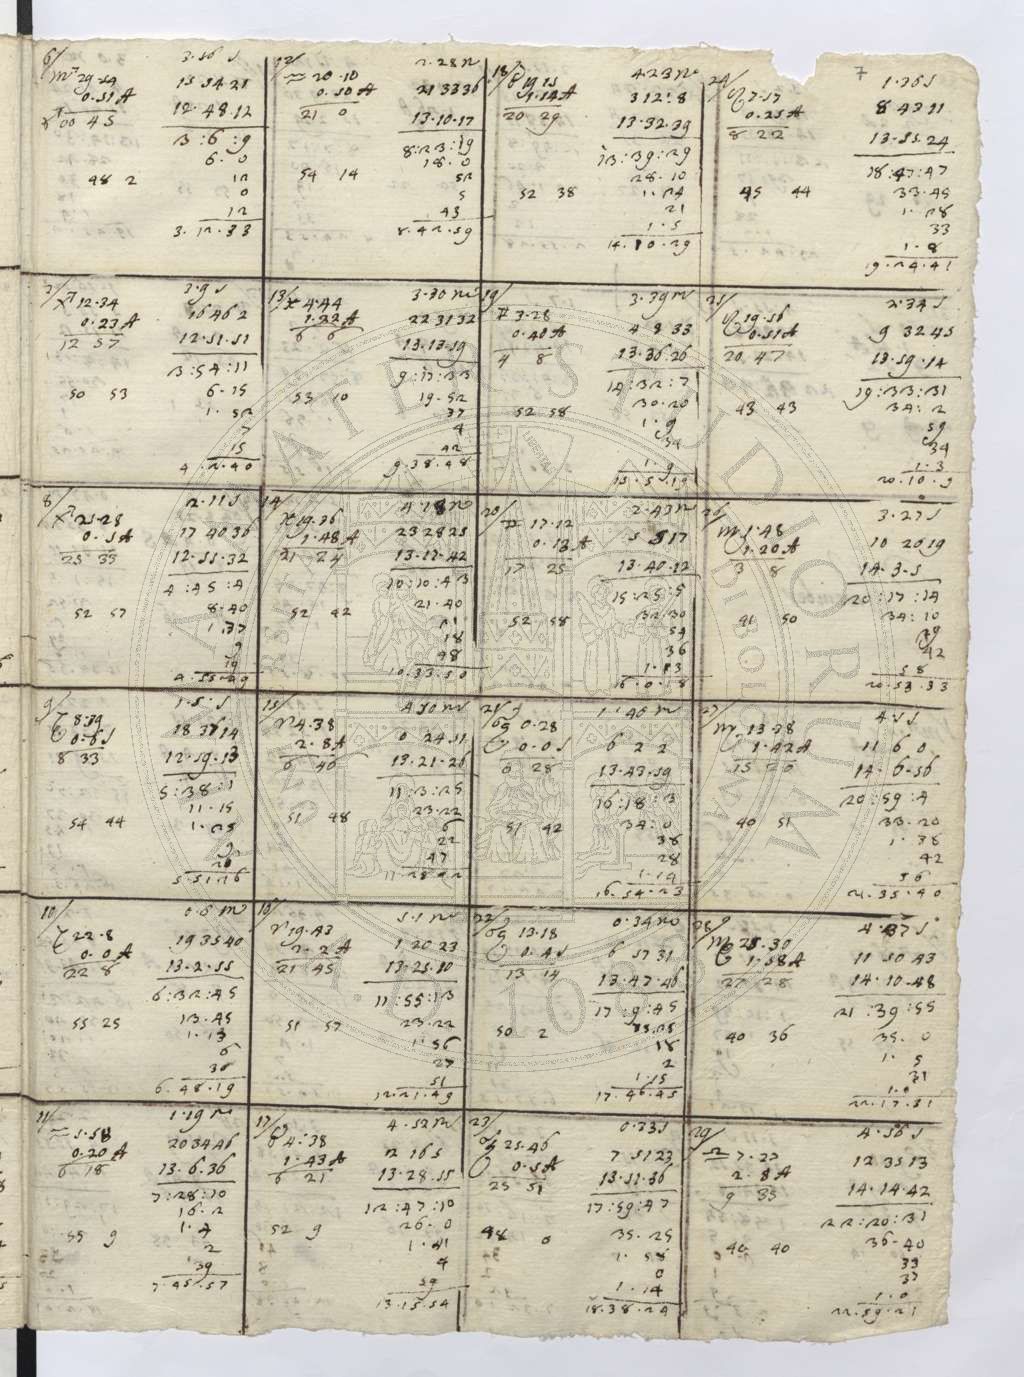 7
6/ 3.56 S
♏ 29.54 15 54 21
0.51 A 12.48.12
♐ 00 45 3:6:9
6.0
48 2 12
0
12
3.12.33
7/ 3.9 S
♐ 12.34 16 46 2
0.23 A 12.51.51
12 57 3:54:11
50 53 6.15
1.52
7
15
4.2.40
8/ 2.11 S
♐ 25.28 17 40 36
0.5 A 12.51.32
25 33 4:45:4
52 57 8.40
1.37
9
19
4.55.29
9/ 1.5.S
♑ 8.39 18 37 14
0.6 S 12.59.13
8 33 5:38:1
54 44 11.15
1.25
9
20
5.51.26
10/ 0.8 m
♑ 22.8 19 35 40
0.0 A 13.2.55
22 8 6:32:45
55 25 13.45
1.13
6
30
6.48.19
11/ 1.19 m
♒ 5.58 20 34 46
0.20 A 13.6.36
6 18 7:28:10
55 9 16.2
1.4
2
39
7.45.57
12/ 2.28 m
♒ 20.10 21 33 36
0.50 A 13.10.17
21 0 8:23:19
18.0
54 14 52
5
43
8.42.59
13/ 3.30 m
♓ 4.44 22 31 32
1.22 A 13.13.59
6 6 9:17:33
53 10 19.52
37
4
42
9.38.48
14/ 4.18 m
♓ 19.36 23 28 25
1.48 A 13.17.42
21 24 10:10:43
52 42 21.40
21
18
48
10.33.50
15/ 4 50 m
♈ 4.38 0 24 51
2.8 A 13.21.26
6 46 11:3:25
51 48 23.22
6
22
47
11.28.42
16/ 5.1 m
♈ 19.43 1 20 23
2.2 A 13.25.10
21 45 11:55:13
51 57 23.22
1.56
27
51
12.21.49
17/ 4.52 m
♉ 4:38 2 16 5
1.43 A 13.28.55
6 21 12:47:10
52 9 26.0
1.41
4
59
13.15.54
18/ 4 23 m
♉ 19 15 3 12:8
1.14 A 13.32.39
20 29 13:39:29
28.10
52 38 1.24
21
1.5
14.10.29
19/ 3.39 m
♊ 3.28 4 8 33
0.40 A 13.36.26
4 8 14:32:7
52 58 30.20
1.9
34
1.9
15.5.19
20/ 2.43 m
♊ 17.12 5 5 17
0.13 A 13.40.12
17 25 15:25:5
52 58 32.30
54
36
1.13
16.0.18
21/ 1.40 m
♋ 0.28 6 2 2
0.0 S 13.43.59
0 28 16:18:3
51 42 34:0
38
28
1.14
16.54.23
22/ 0.34 m
♋ 13.18 6 57 31
0.4 S 13.47.46
13 14 17:9:45
50 2 35.25
18
2
1.15
17.46.45
23/ 0.33 S
♋ 25.46 7 51 23
0.5 A 13.51.36
25 51 17:59:47
48 0 35.25
1.58
0
1.14
18.38.24
24/ 1.36 S
♌ 7.57 8 43 11
0.25 A 13.55.24
8 22 18:47:47
45 44 33.45
1.28
33
1.8
19.24.41
25/ 2.34 S
♌ 19.56 9 32 45
0.51 A 13.59.14
20 47 19:33:31
43 43 34:2
59
34
1.3
20.10.9
26/ 3.27 S
♍ 1.48 10 20 19
1.20 A 14.3.5
3 8 20:17:14
41 50 34:10
29
42
58
20.53.33
27/ 4.5 S
♍ 13.38 11 6 0
1.42 A 14.6.56
15 20 20:59:4
40 51 33.20
1.38
42
56
21.35.40
28/ 4.37 S
♍ 25.30 11 50 43
1.58 A 14.10.48
27 28 21:39:55
40 36 35.0
1.5
31
1.0
22.17.31
29/ 4.56 S
♎ 7.27 12 35 13
2.8 A 14.14.42
9 35 22:20:31
40 40 36.40
33
37
1.0
22.59.21